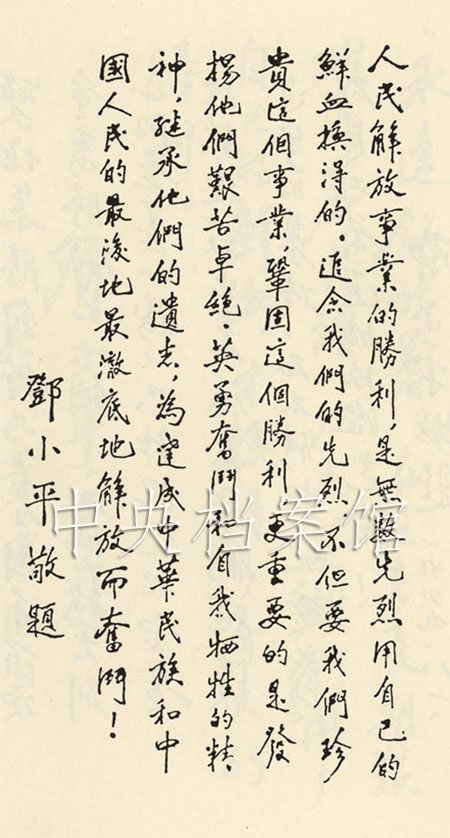 人民解放事業的勝利，是無數先烈用自己的
鮮血換得的。追念我們的先烈，不但要我們珍
貴這個事業，鞏固這個勝利，更重要的是發
揚他們艱苦卓絕、英勇奮鬥和自我牺牲的精
神，继承他們的遺志，為達成中華民族和中
國人民的最後地最澈底地解放而奮鬥！
鄧小平敬題
中央档案馆